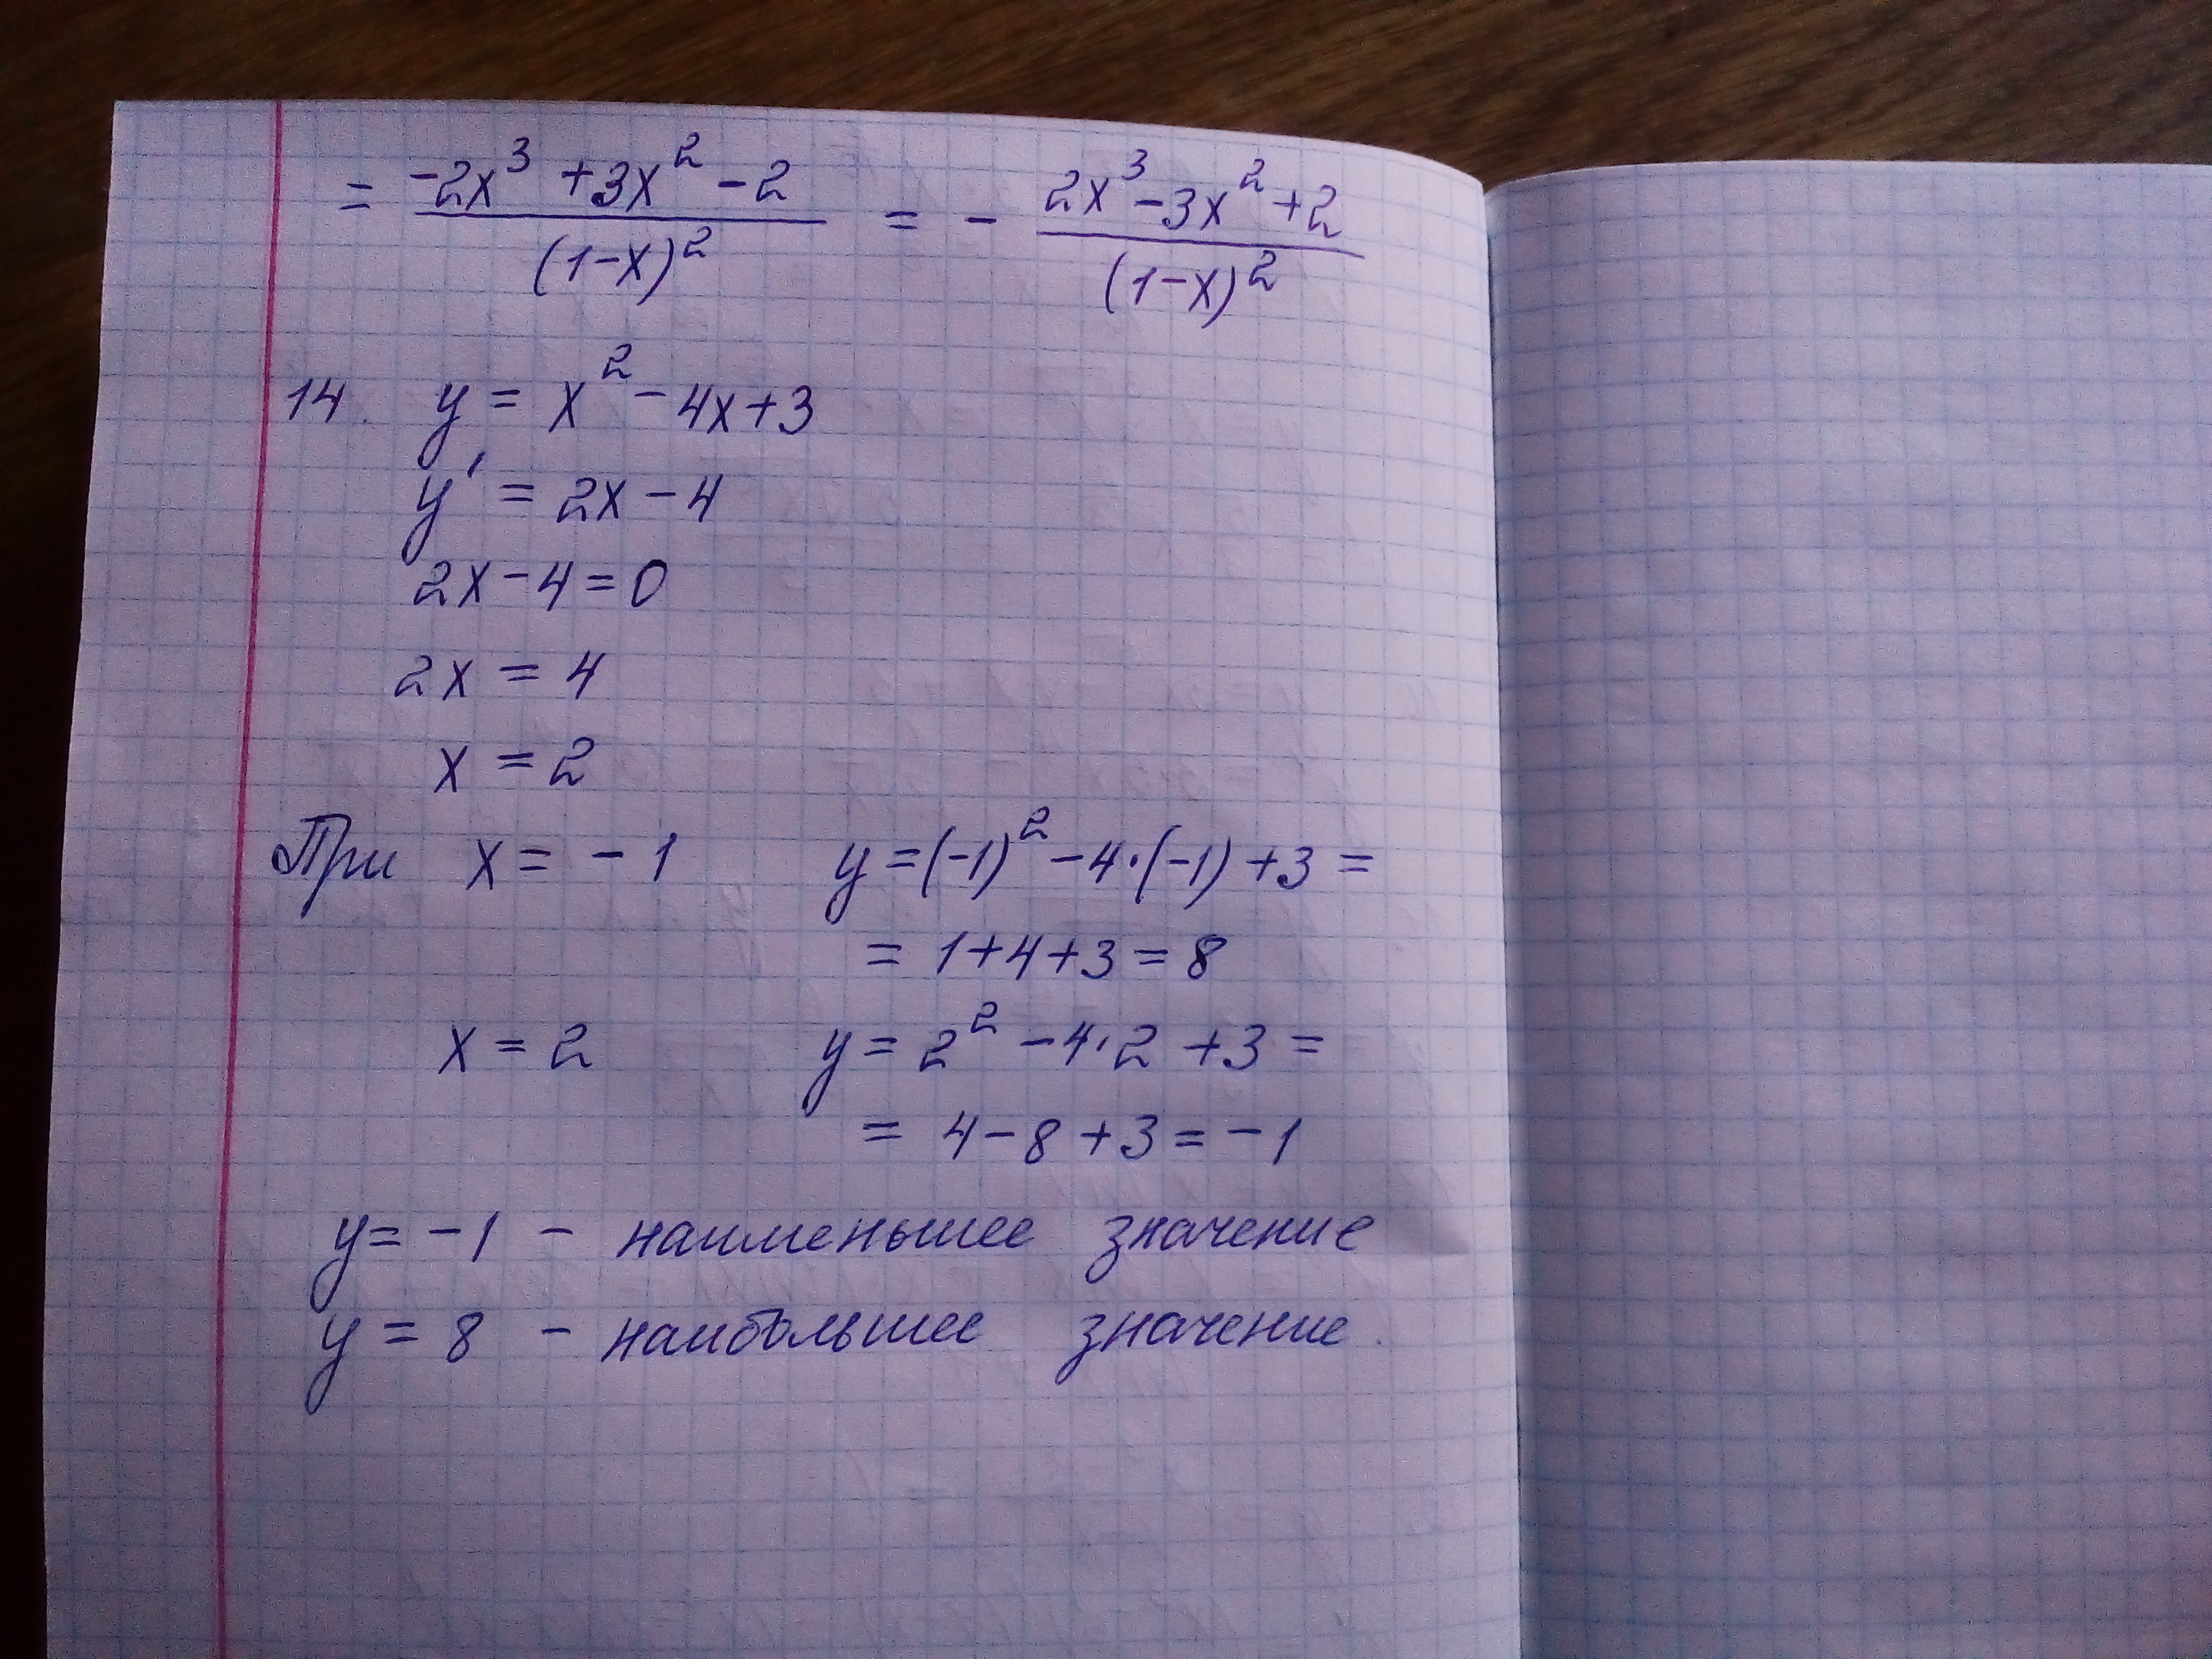 = (-2x³ + 3x² - 2)/(1-x)² = - (2x³ - 3x² + 2)/(1-x)²
14. y = x² - 4x + 3
y' = 2x - 4
2x - 4 = 0
2x = 4
x = 2
При x = -1 y = (-1)² - 4·(-1) + 3 =
= 1 + 4 + 3 = 8
x = 2 y = 2² - 4·2 + 3 =
= 4 - 8 + 3 = -1
y = -1 - наименьшее значение
y = 8 - наибольшее значение.